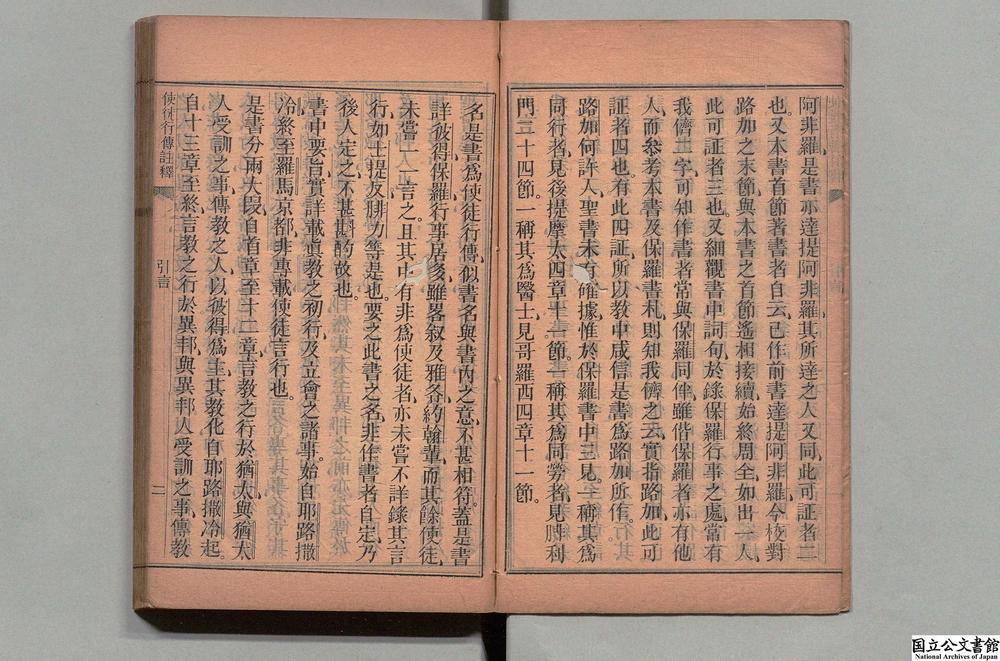 阿非羅、是書亦達提阿非羅、其所達之人又同、此可証者二
也。又本書首節、著書者自云、已作前書達提阿非羅、今校對
路加之末節、與本書之首節、遙相接續、始終周全、如出一人、
此可証者三也。又細觀書中詞句、於錄保羅行事之處、常有
我儕二字、可知作書者常與保羅同伴、雖偕保羅者、亦有他
人、而參考本書及保羅書札、則知我儕之云、實指路加、如此可
証者四也。有此四証、所以教中咸信是書爲路加所作。
路加如何許人、聖書未有確據、惟於保羅書中三見、一稱其爲
同行者、見後提摩太四章十一節。一稱其爲同勞者、見腓利
門二十四節。一稱其爲醫士、見哥羅西四章十一節。
名是書爲使徒行傳、似書名與書內之意、不甚相符。蓋是書
詳彼得保羅行事居多、雖畧叙及雅各約翰輩、而其餘使徒、
未嘗一一言之。且其中有非爲使徒者、亦未嘗不詳錄其言
行、如士提反腓力等是也。要之此書之名、非作書者自定、乃
後人定之、不甚斟酌故也。
書中要旨、實詳載眞教之初行、及立會之諸事。始自耶路撒
冷、終至羅馬京都、非專載使徒言行也。
是書分兩大段、自首章至十二章、言教之行於猶太、與猶太
人受訓之事、傳教之人、以彼得爲主、其教化自耶路撒冷起。
自十三章至終、言教之行於異邦、與異邦人受訓之事、傳教
使徒行傳註釋
引言
二
国立公文書館
National Archives of Japan